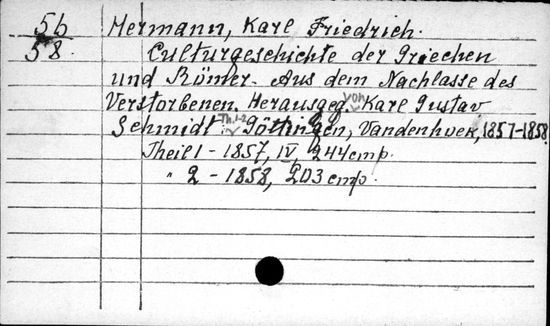 56 Hermann, Karl Friedrich.
58. Culturgeschichte der Griechen
und Römer. Aus dem Nachlasse des
Verstorbenen. Herausgeg. von Karl Gustav
Schmidt. Th. 1-2 Göttingen, Vandenhoek, 1857-1858
Theil 1 - 1857, IV, 244 стр.
" 2 - 1858, 203 стр.